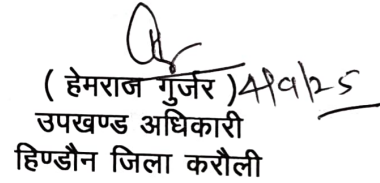 ( हेमराज गुर्जर ) 4/9/25
उपखण्ड अधिकारी
हिण्डौन जिला करौली